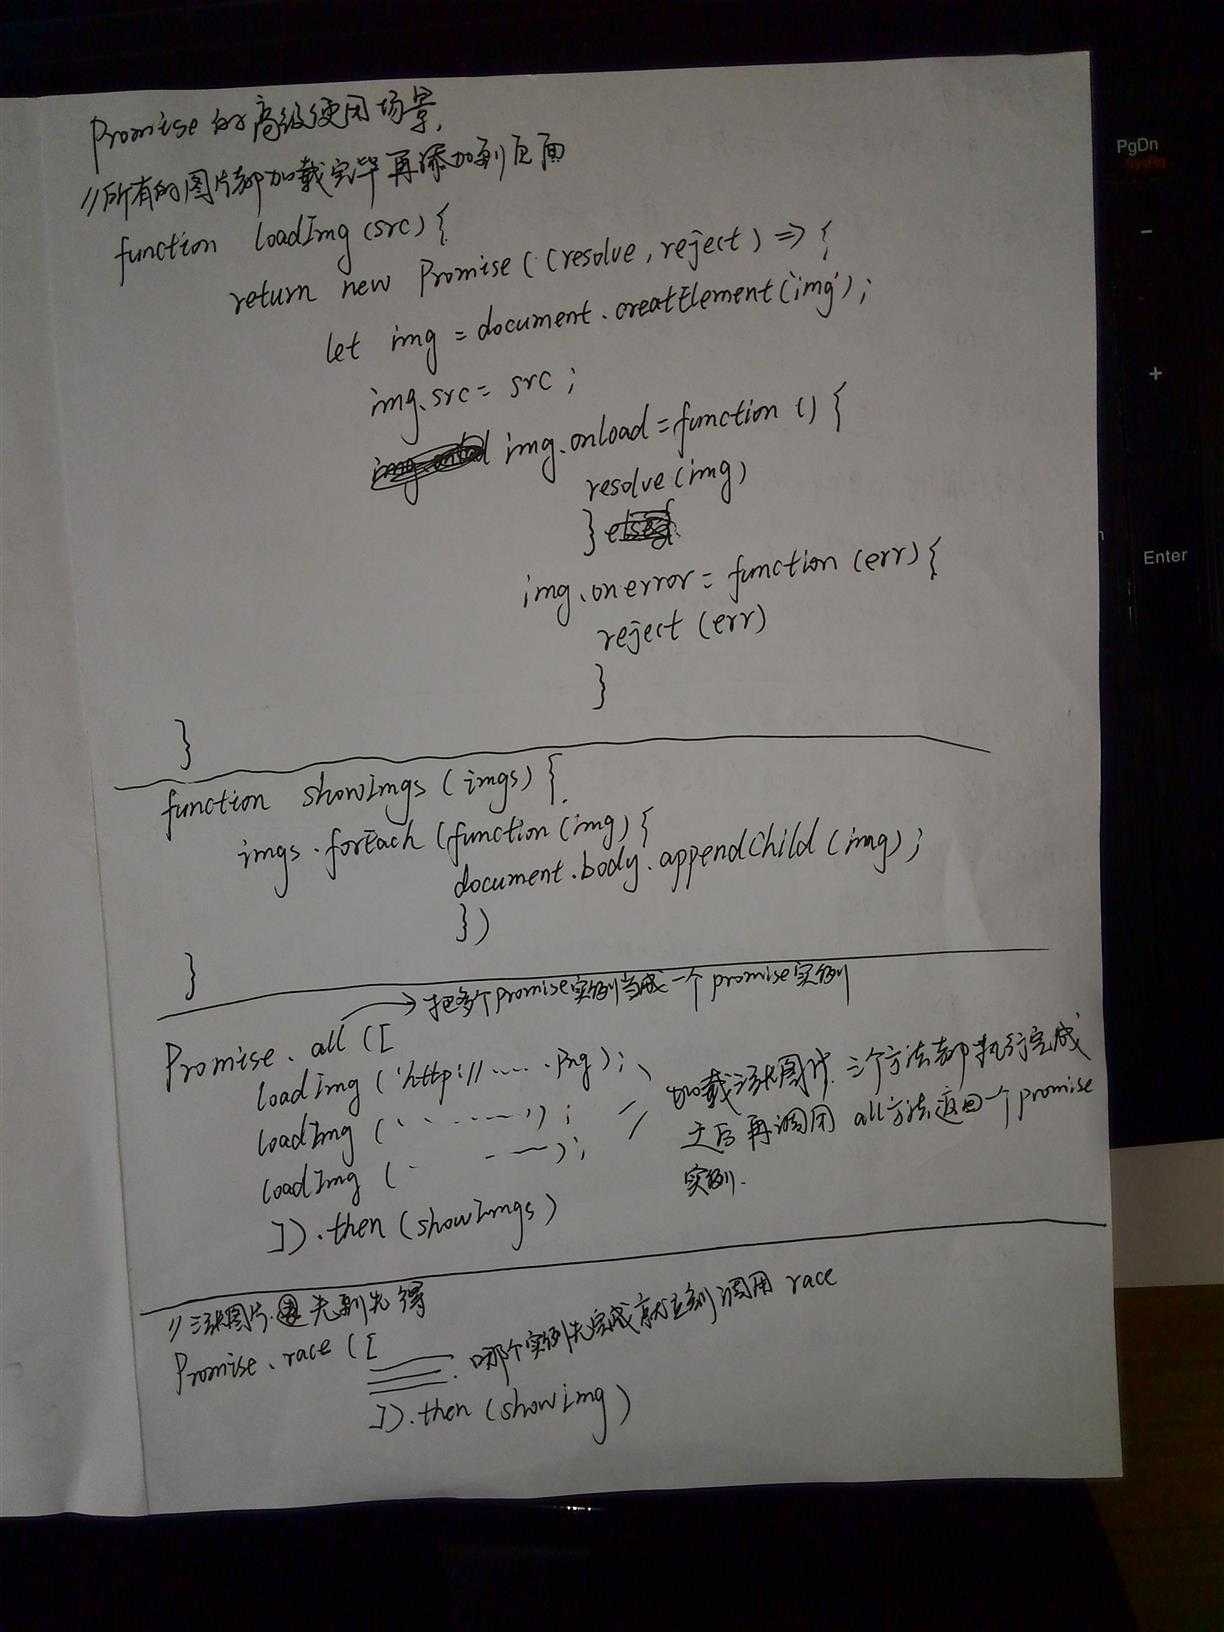 Promise的高级使用场景,
//所有的图片都加载完毕再添加到页面
function loadImg (src) {
return new Promise ( (resolve, reject) => {
let img = document.creatElement('img');
img.src = src ;
img.onload = function () {
resolve (img)
}
img.onerror = function (err) {
reject (err)
}
}
function showImgs (imgs) {
imgs.forEach (function (img) {
document.body.appendChild (img) ;
})
}
→ 把多个promise实例当成一个promise实例
Promise.all ([
loadImg ('http://......png);
loadImg (
loadImg (
]).then (showImgs)
加载三张图片.三个方法都执行完成
之后再调用 all方法返回一个promise
实例.
//三张图片 先到先得
Promise.race ([
哪个实例先完成就立刻调用 race
]).then (showimg)
PgDn
SysRq
-
+
Enter